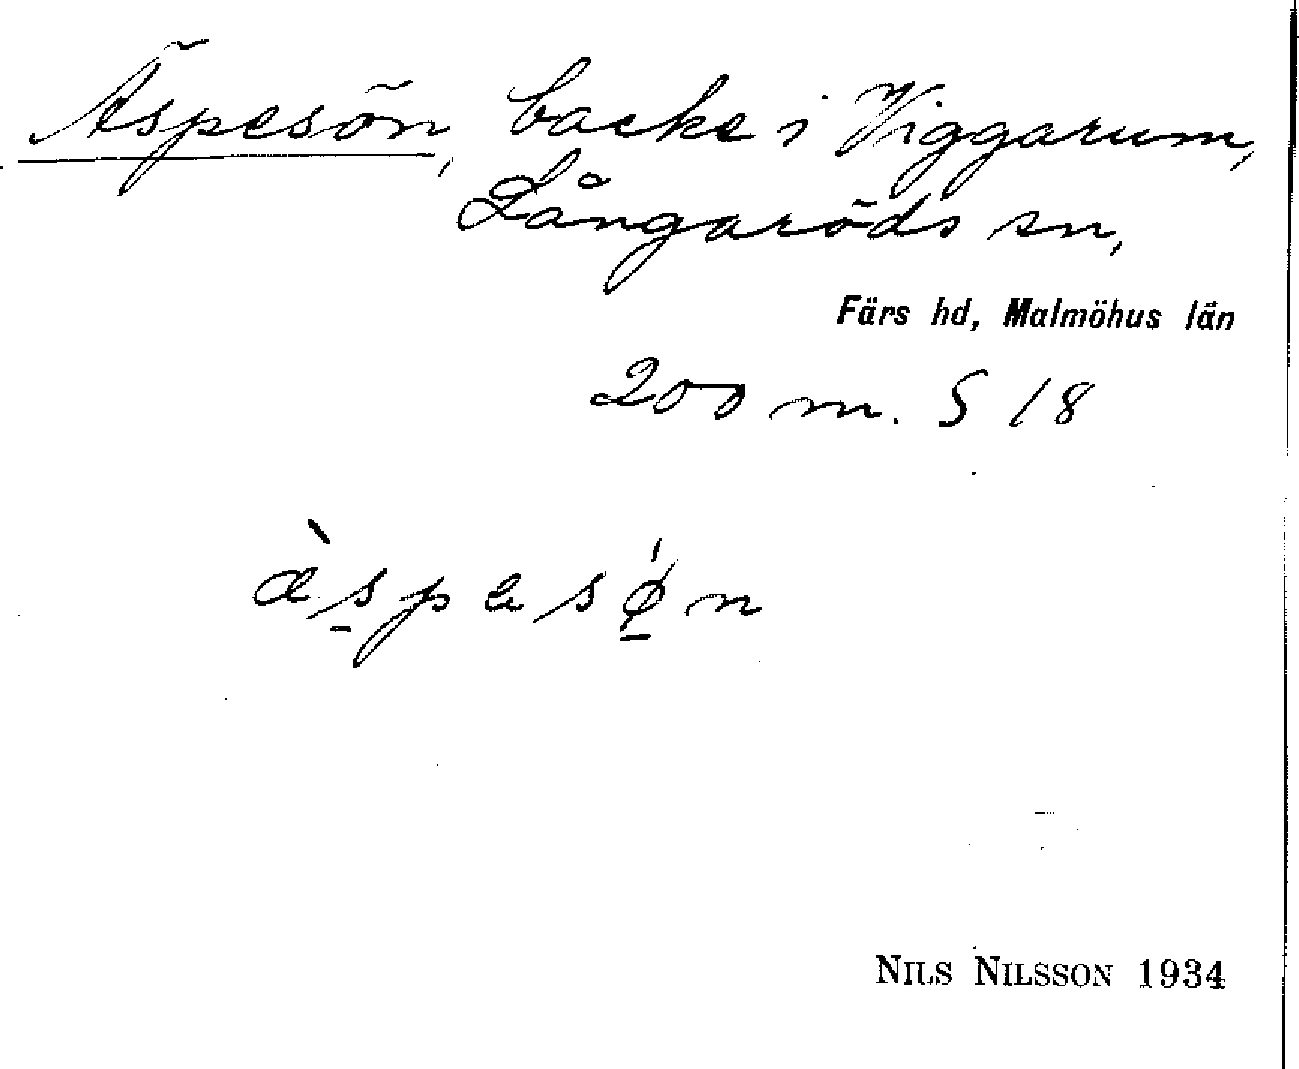 Äspesön, backe i Viggarum,
Långaröds sn,
Färs hd, Malmöhus län
200 m. S 18
æ̀s̱pesǿ̱n
NILS NILSSON 1934